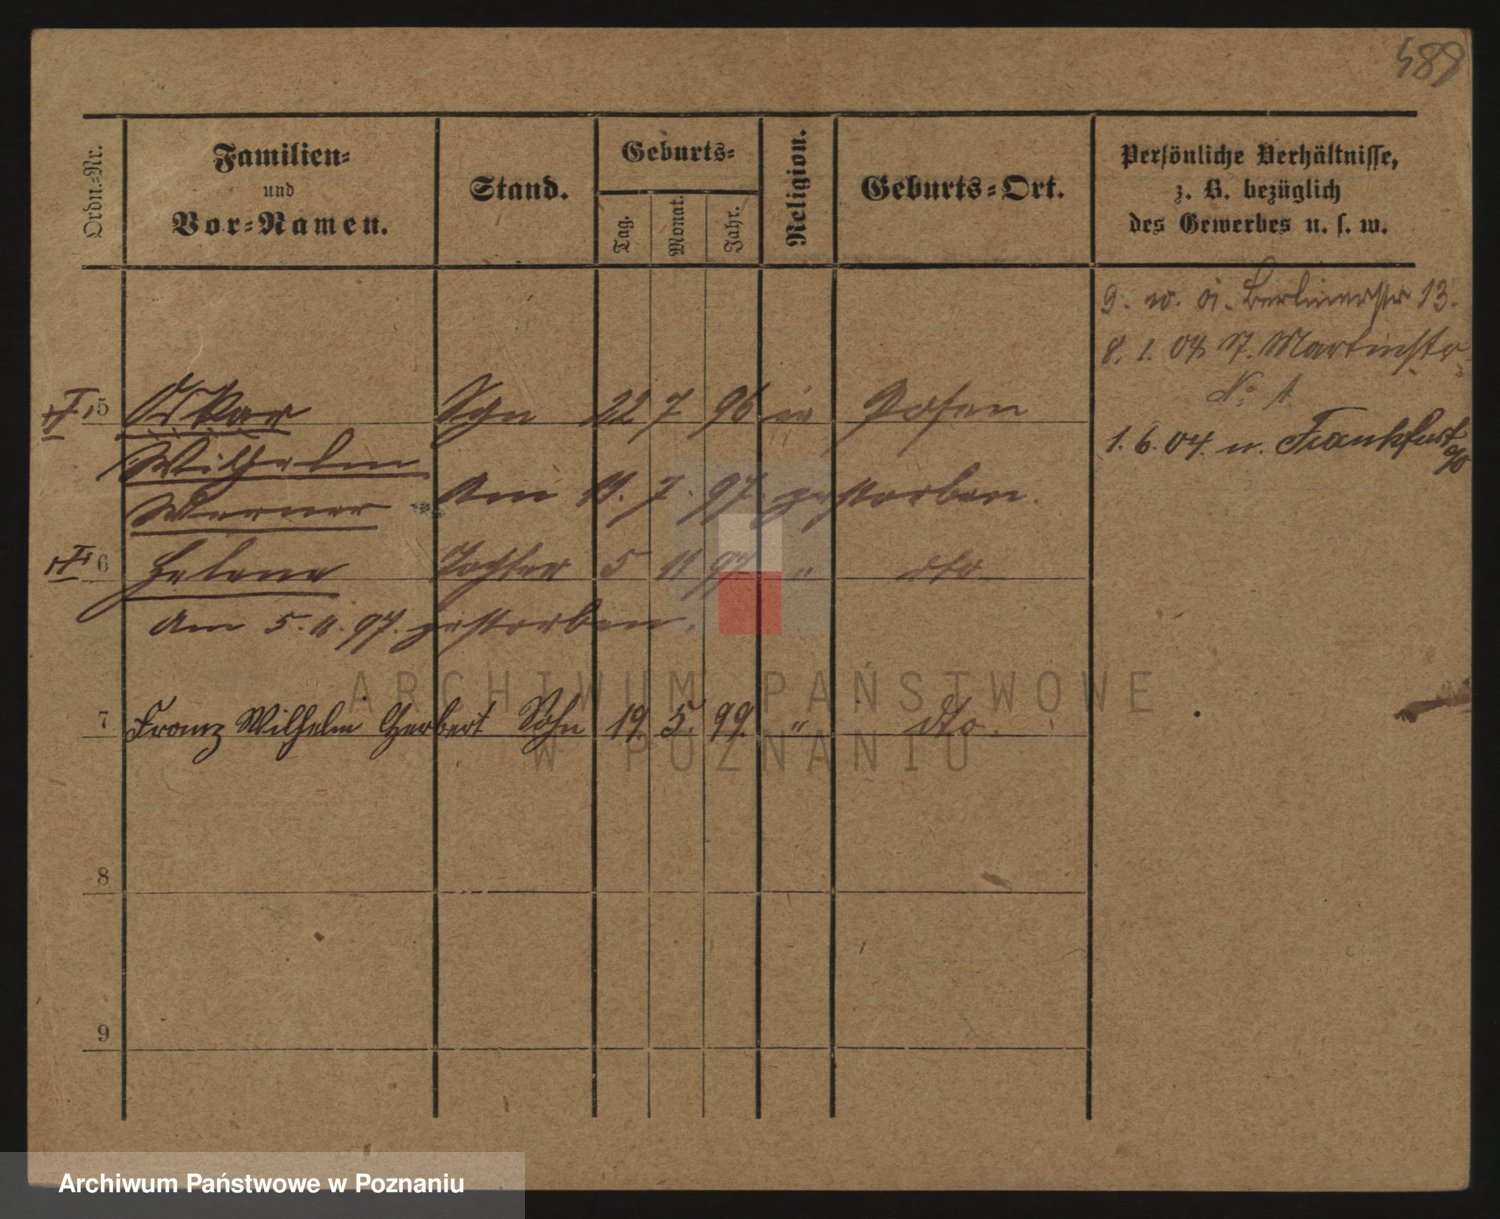 488
Ordn.-Nr.
Familien-
und
Vor-Namen.
Stand.
Geburts-
Tag.
Monat.
Jahr.
Religion.
Geburts-Ort.
Persönliche Verhältnisse,
z. B. bezüglich
des Gewerbes u. s. w.
Berlinerstr 13.
8. 1. 04 Martinstr
No 1
1. 6. 04. n. Frankfurt a/O
5 Oskar Sohn 22 7 96 Posen
Wilhelm
Werner Am 11. 7. 97. gestorben.
6 Helene Tochter 5 11 97 " dto
Am 5. 11. 97. gestorben.
7 Franz Wilhelm Herbert Sohn 19. 5. 99. " dto.
8
9
ARCHIWUM PAŃSTWOWE
W POZNANIU
Archiwum Państwowe w Poznaniu